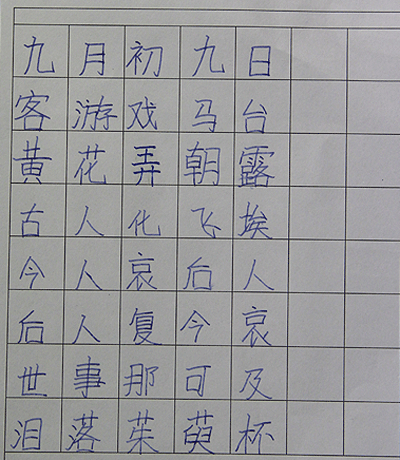 九月初九日
客游戏马台
黄花弄朝露
古人化飞埃
今人哀后人
后人复今哀
世事那可及
泪落茱萸杯